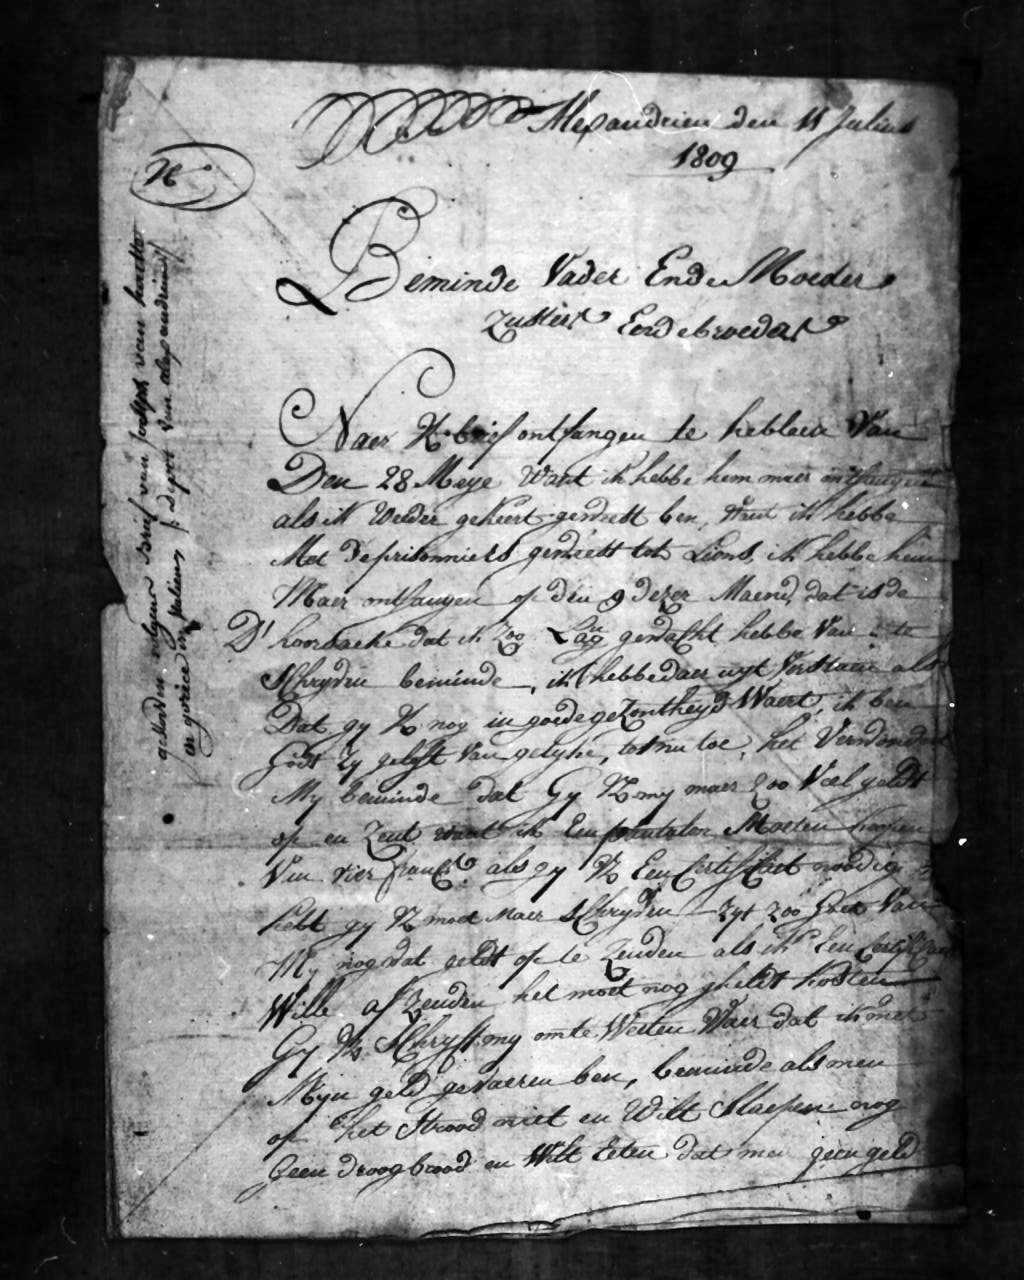 Alexandrien den 11 Julius
1809
Beminde Vader Ende Moeder
Zusters Ende broeders
Naer U brief ontfangen te hebben Van
Den 28 Meye Want ik hebbe hem maer ontfangen
als ik Weder gekeert gereest ben, Want ik hebbe
Met De prisonniers gereest tot Lions, ik hebbe hem
Maer ontfangen op den 9 Dezer Maend, dat is de
D'hoorsaeke dat ik Zoo Lang gewacht hebbe Van te
Schryven beminde, ik hebbe daer uyt Verstaen als
Dat gy U nog in goede gezontheyd Waert, ik ben
Godt Zy gelyft Van gelyke, tot nu toe, het Verwondert
My beminde dat Gy U my maer Zoo Veel geldt
op en Zent want ik Een pantalon Moeten koopen
Van vier francs als gy U Een Certificaet noodig
hebt gy U moet Maer Schryven Zyt Zoo Goet Van
My nog dat geldt op te Zenden als ik U Een Certificaet
Wille af Zenden het moet nog gheldt kosten
Gy U Schryft my om te Weten Waer dat ik met
Myn geld gevaeren ben, beminde als men
op het Strood niet en Wilt Slaepen nog
Geen droog brood en Wilt Eeten dat men geen geld
brief van joseph van
in service in italien / Depot van alexandrien /